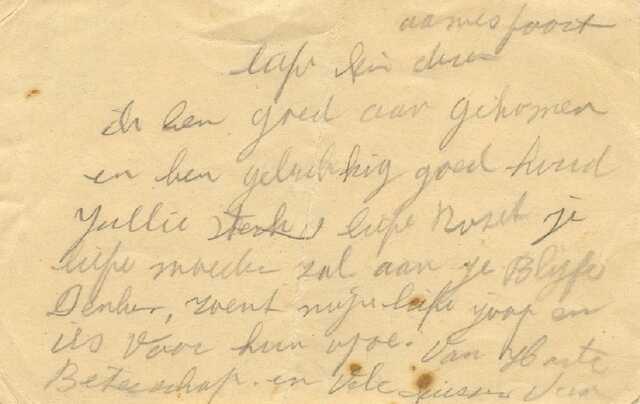 aamesfoort
liefe kin deren
ik ben goed aan gekomen
en ben gelukkig goed houd
jullie sterk liefe Roset je
liefe moeder zal aan je Blijfe
Denken, zoent mijn liefe joop en
is voor hun opoe. Van Harte
Beterschap. en vele kussen van